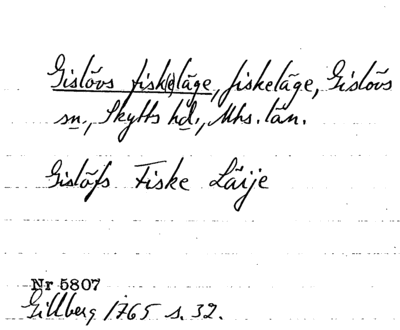 Gislövs fisk(e)läge, fiskeläge, Gislövs
sn., Skytts hd., Mhs. län.
Gislöfs Fiske Läije
Nr 5807
Gillberg 1765 s. 32.